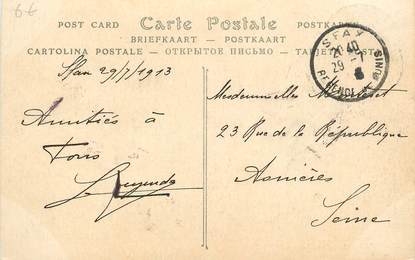 6€
POST CARD Carte Postale POSTKARTE
BRIEFKAART — POSTKAART
CARTOLINA POSTALE — ОТКРЫТОЕ ПИСЬМО —
Sfax 29/7/1913
SFAX
20 40
29 -7
Amitiés à
Tous
Mesdemoiselles
23 Rue de la République
Asnières
Seine